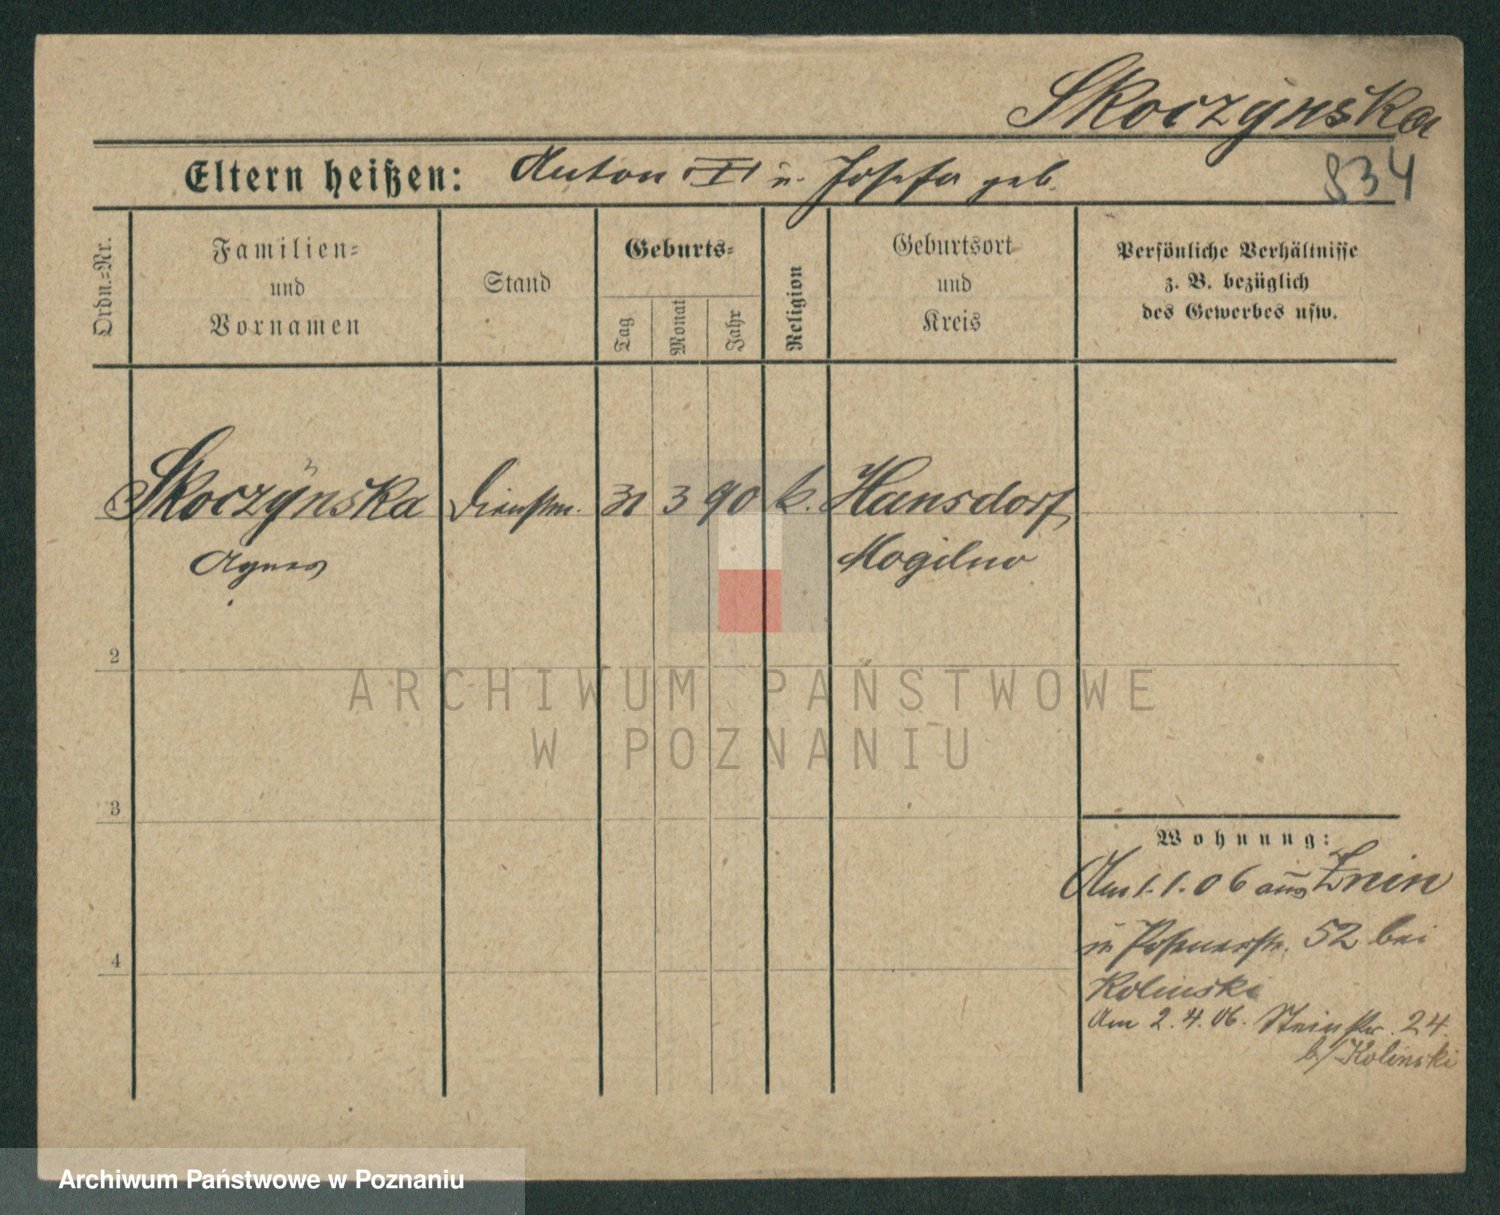 Skoczÿnska
834
Eltern heißen: Anton I u. Josefa geb.
Ordn.=Nr.
Familien=
und
Vornamen
Stand
Geburts=
Tag
Monat
Jahr
Religion
Geburtsort
und
Kreis
Persönliche Verhältnisse
z. B. bezüglich
des Gewerbes usw.
Skoczÿnska Dienstm. 31 3 90 k. Hansdorf
Agnes Mogilno
2
ARCHIWUM PAŃSTWOWE
W POZNANIU
3
4
Wohnung:
Am 1.1.06 aus Znin
Posenerstr. 52 bei
Kolinski
Am 2.4.06. Steinstr. 24.
b/ Kolinski
Archiwum Państwowe w Poznaniu